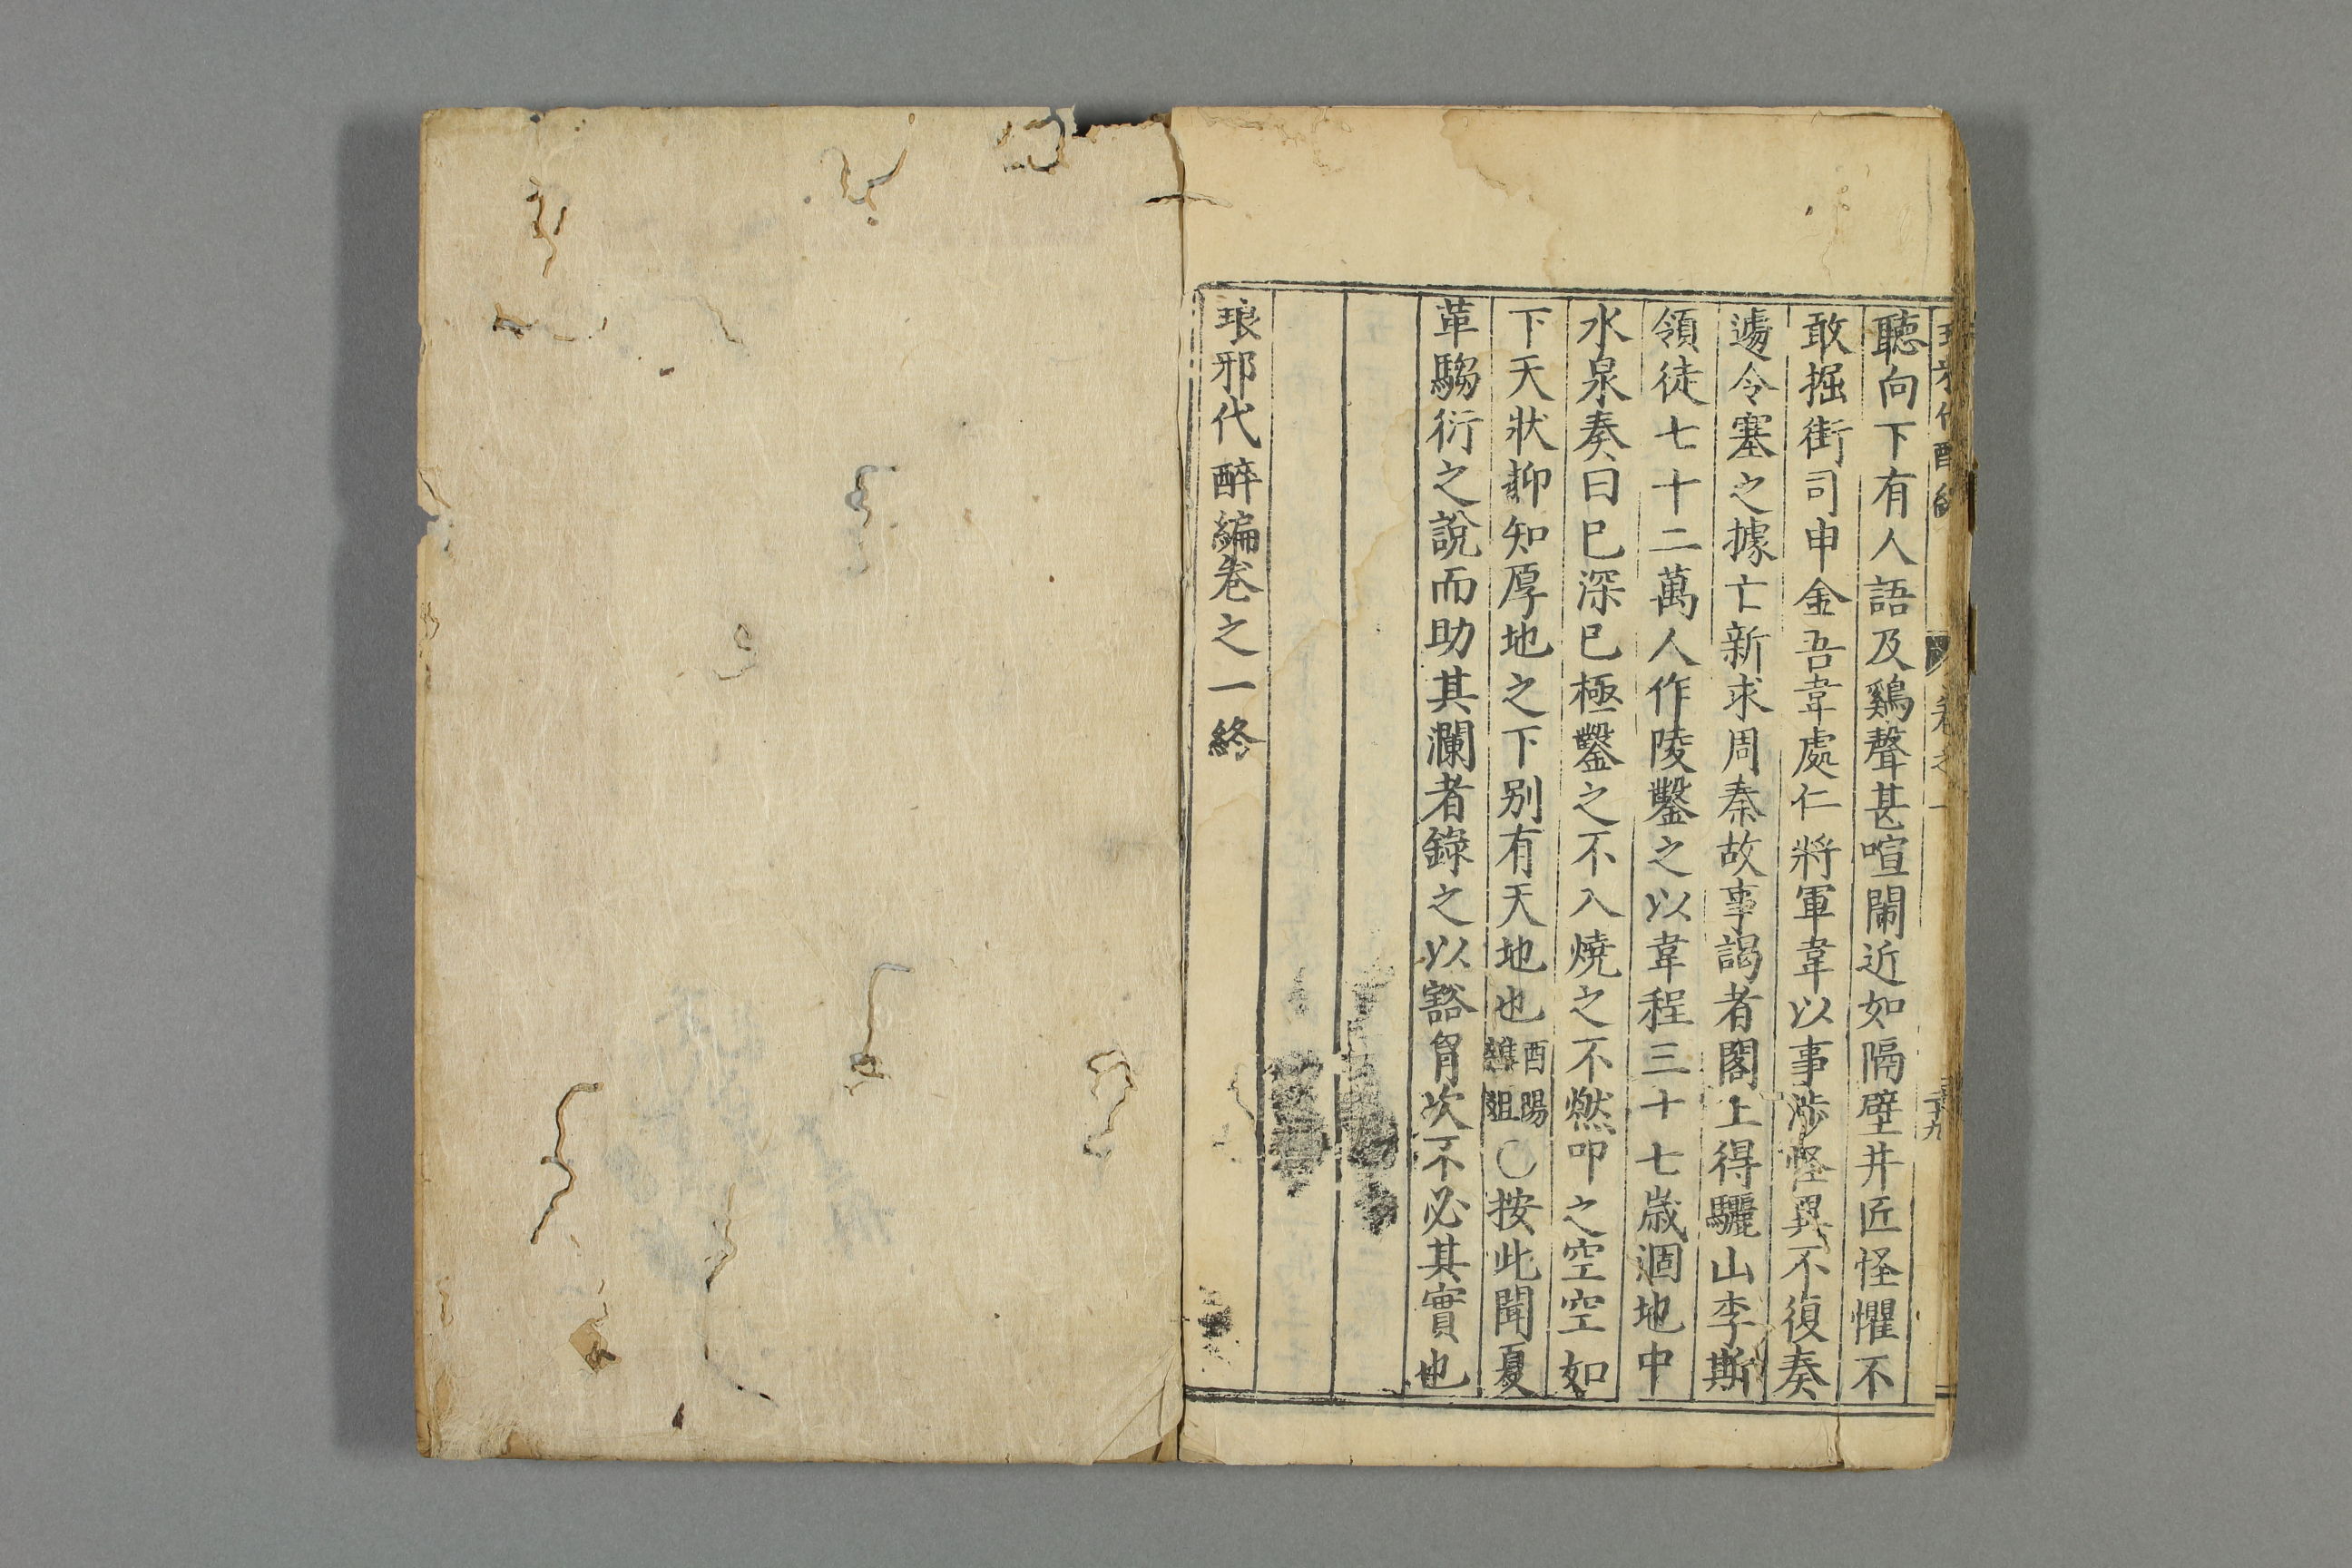 聽向下有人語及鷄聲甚喧閙近如隔壁井匠怪懼不
敢掘街司申金吾韋處仁將軍韋以事涉怪異不復奏
遽令塞之據亡新求周秦故事謁者閣上得驪山李斯
領徒七十二萬人作陵鑿之以韋程三十七歲涸地中
水泉奏曰已深已極鑿之不入燒之不燃叩之空空如
下天狀抑知厚地之下别有天地也酉陽雜爼〇按此聞夏
革騶衍之說而助其瀾者錄之以豁胷次不必其實也
琅邪代醉編卷之一終